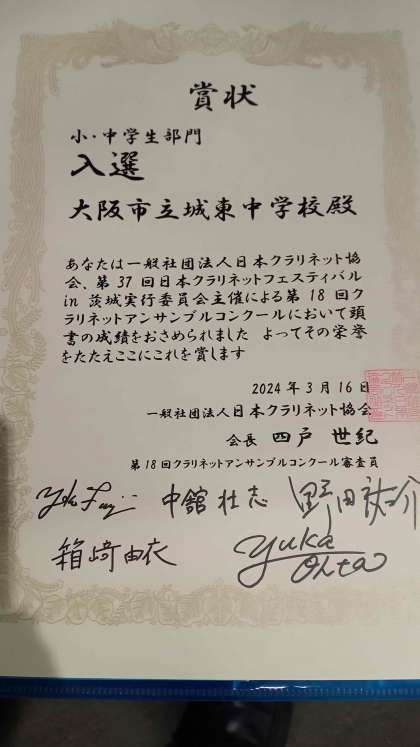 賞状
小・中学生部門
入選
大阪市立城東中学校殿
あなたは一般社団法人日本クラリネット協
会、第37回日本クラリネットフェスティバル
in 茨城実行委員会主催による第18回ク
ラリネットアンサンブルコンクールにおいて頭
書の成績をおさめられました よってその栄誉
をたたえここにこれを賞します
2024年3月16日
一般社団法人日本クラリネット協会
会長 四戸 世紀
第18回クラリネットアンサンブルコンクール審査員
中舘 壮志 野田祐介
箱﨑由衣 Yuka Ohta